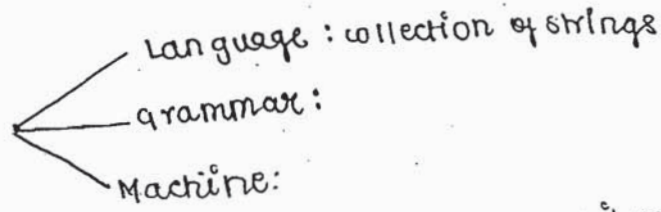 Language : collection of strings
grammar :
Machine: